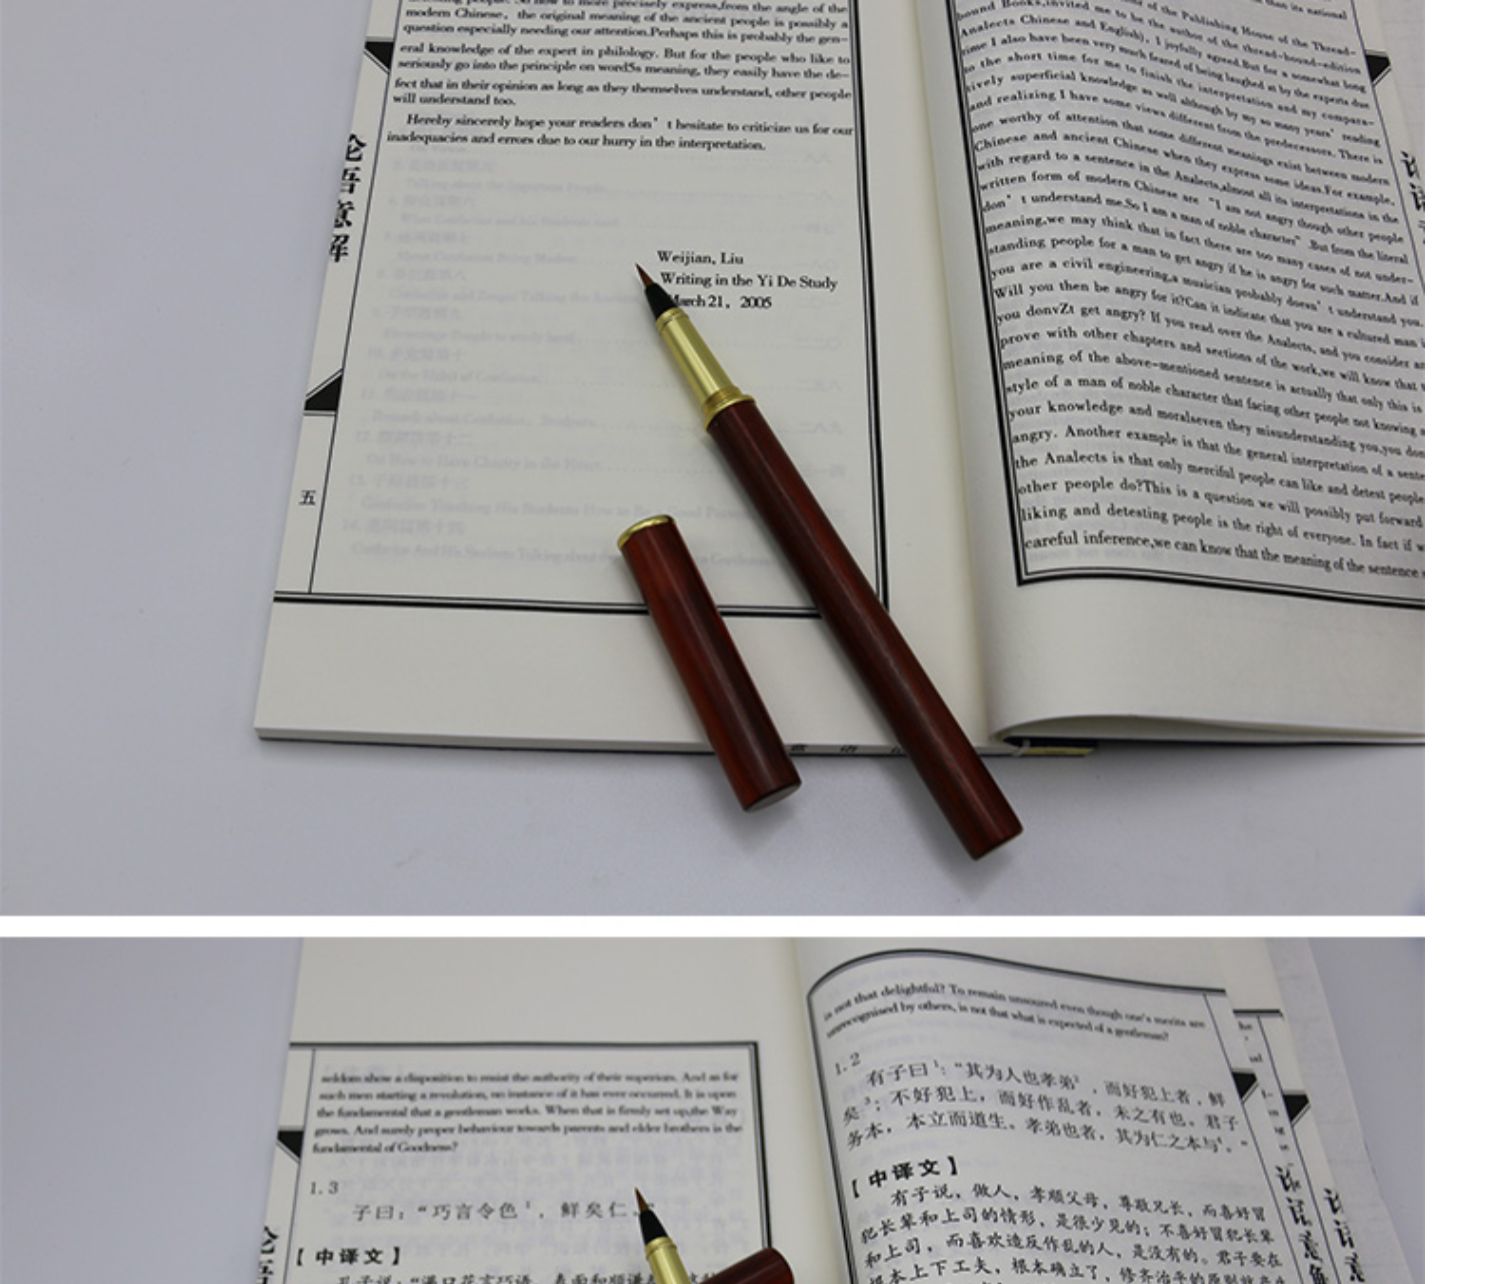 modern Chinese, the original meaning of the ancient people is possibly a
question especially needing our attention.Perhaps this is probably the gen-
eral knowledge of the expert in philology. But for the people who like to
seriously go into the principle on word5s meaning, they easily have the de-
fect that in their opinion as long as they themselves understand, other people
will understand too.
Hereby sincerely hope your readers don't hesitate to criticize us for our
inadequacies and errors due to our hurry in the interpretation.
Weijian, Liu
Writing in the Yi De Study
March 21, 2005
论语意解
五
of the Publishing House of the Thread-
bound Books,invited me to be the author of the thread-bound-edition
Analects Chinese and English), I joyfully agreed.But for a somewhat long
time I also have been very much feared of being laughed at by the experts due
to the short time for me to finish the interpretation and my compara-
tively superficial knowledge as well although by my so many years' reading
and realizing I have some views different from the predecessors. There is
one worthy of attention that some different meanings exist between modern
Chinese and ancient Chinese when they express some ideas.For example,
with regard to a sentence in the Analects,almost all its interpretations in the
written form of modern Chinese are "I am not angry though other people
don't understand me.So I am a man of noble character" .But from the literal
meaning,we may think that in fact there are too many cases of not under-
standing people for a man to get angry if he is angry for such matter.And if
you are a civil engineering,a musician probably doesn't understand you.
Will you then be angry for it?Can it indicate that you are a cultured man
you donvZt get angry? If you read over the Analects, and you consider
prove with other chapters and sections of the work,we will know that
meaning of the above-mentioned sentence is actually that only this is
style of a man of noble character that facing other people not knowing
your knowledge and moralseven they misunderstanding you,you don
angry. Another example is that the general interpretation of a sente
the Analects is that only merciful people can like and detest people
other people do?This is a question we will possibly put forward
liking and detesting people is the right of everyone. In fact if w
careful inference,we can know that the meaning of the sentence
seldom show a disposition to resist the authority of their superiors. And as for
such men starting a revolution, no instance of it has ever occurred. It is upon
the fundamental that a gentleman works. When that is firmly set up,the Way
grows. And surely proper behaviour towards parents and elder brothers is the
fundamental of Goodness?
1.3
子曰：“巧言令色¹，鲜矣仁。”
【中译文】
is not that delightful? To remain unsoured even though one's merits are
unrecognised by others, is not that what is expected of a gentleman?
1.2
有子曰¹：“其为人也孝弟²，而好犯上者，鲜
矣³；不好犯上，而好作乱者，未之有也。君子
务本，本立而道生。孝弟也者，其为仁之本与⁴。”
【中译文】
有子说，做人，孝顺父母，尊敬兄长，而喜好冒
犯长辈和上司的情形，是很少见的；不喜好冒犯长辈
和上司，而喜欢造反作乱的人，是没有的。君子要在
根本上下工夫，根本确立了，修齐治平的原则就